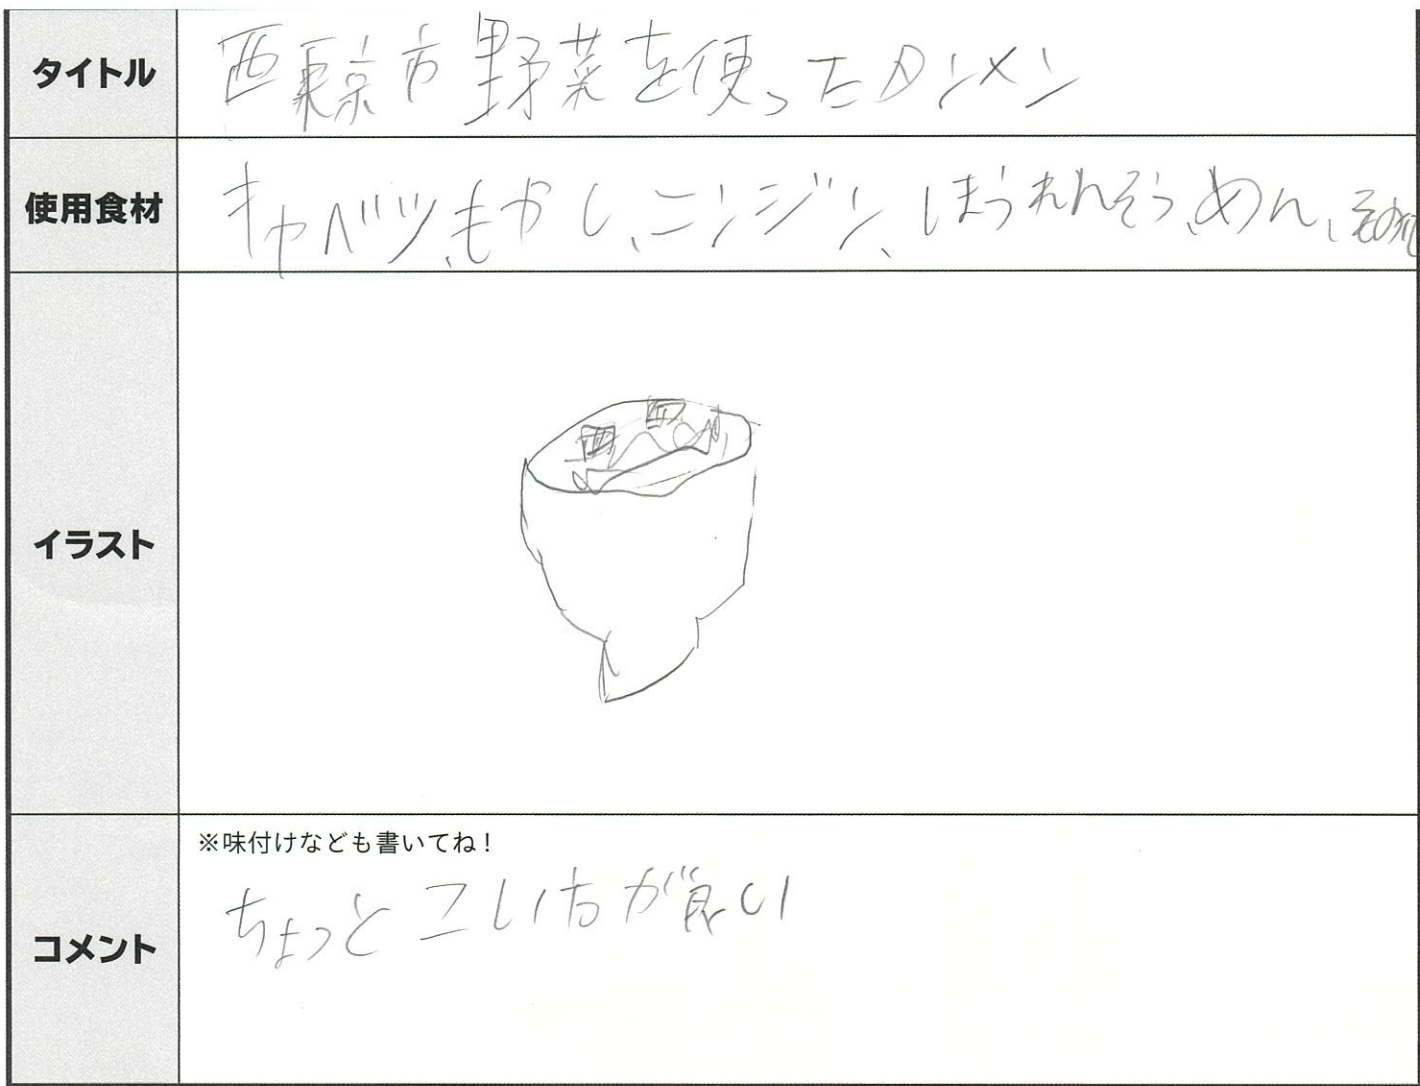 タイトル
西東京市野菜を使ったタンメン
使用食材
キャベツ、もやし、ニンジン、ほうれんそう、めん、その他
イラスト
※味付けなども書いてね！
ちょっとこい方が良い
コメント